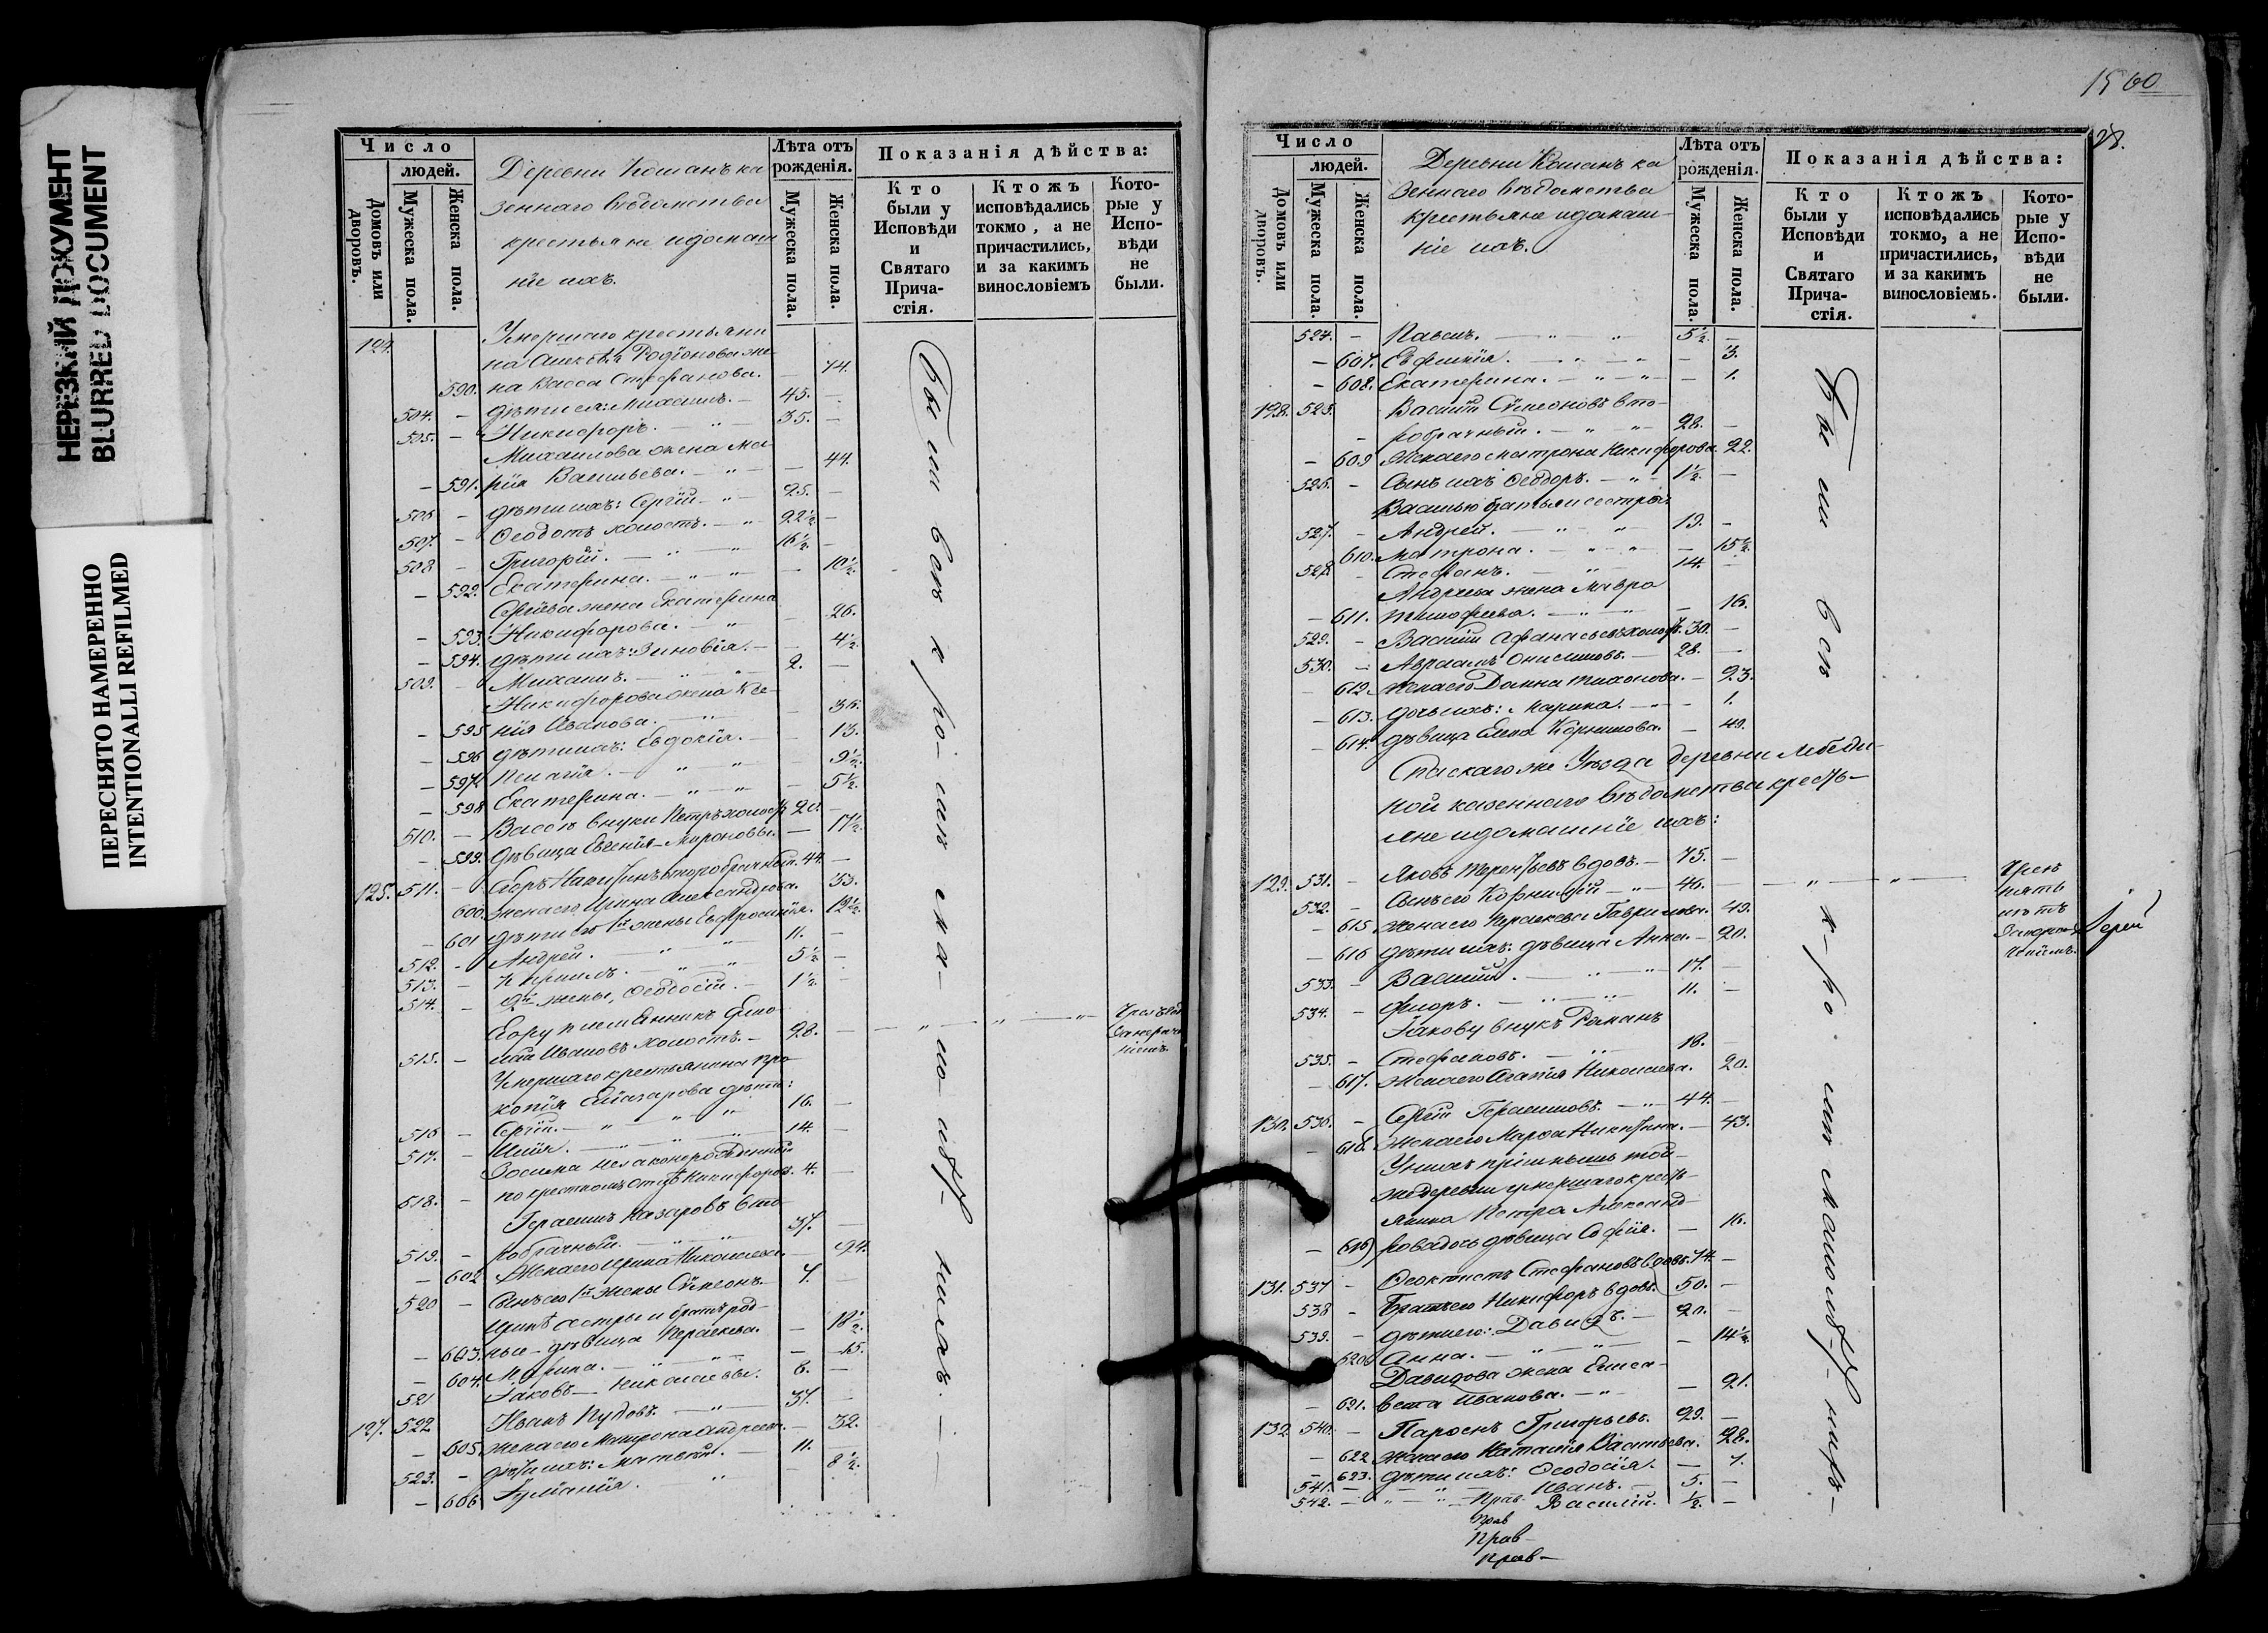 НЕРЕЗКИЙ ДОКУМЕНТ
BLURRED DOCUMENT
ПЕРЕСНЯТО НАМЕРЕННО
INTENTIONALLI REFILMED
Число
людей.
Домовъ или дворовъ.
Мужеска пола.
Женска пола.
Деревни Кошанъ ка
зеннаго вѣдомства
крестьяне и домаш
ніе ихъ.
Лѣта отъ рожденія.
Мужеска пола.
Женска пола.
Показанія дѣйства:
Кто были у Исповѣди и Святаго Прича-стія.
Ктожъ исповѣдались токмо, а не причастились, и за какимъ винословіемъ
Кото-рые у Испо-вѣди не были.
124. Умершаго крестьяни
на Родіонова же
590. на Васса Стефанова. — 74.
504. — дѣти ея: Михаилъ. — 45. —
505. — Никифоръ. — 35. —
Михаилова жена Ма
— 591. рія Васильева. — 44.
506 — дѣти ихъ: Сергій — 25. —
507. — Ѳеодотъ холостъ. — 22½. —
508 — Григорій. — 16½. —
— 592. Екатерина. — 10½.
Сергіева жена Екатерина
— 593. Никифорова. — 26.
— 594. дѣти ихъ: Зиновія. — 4½.
509. — Михаилъ. — 2. —
Никифорова жена Ксе-
— 595 нія Иванова. — 36.
— 596 дѣти ихъ: Евдокія. — 13.
— 597. Пелагія. — 9½.
— 598 Екатерина. — 5½.
510. — Вассѣ внуки Петръ холостъ 20. —
— 599. дѣвица Евгенія — Мироновы. — 17½.
125. 511. — Егоръ Никитинъ второбрачный. 44. —
600. жена его Ирина Александрова. 33.
— 601 дѣти отъ 1й жены Евфросинія. 12½.
512. — Андрей. — 11. —
513. — Кириллъ. — 5½ —
514. — 2й жены, Ѳеодосій. — 1½. —
Егору племянникъ
515. — Ивановъ холостъ. — 28. —
Умершаго крестьянина Про
копія Елизарова дѣти:
516 — Сергій. — 16. —
517. — Илія. — 14. —
Зосима незаконорожденный
518. — по крестномъ отцѣ Никифоровъ. 4. —
Герасимъ Назаровъ вто
519. — робрачный. — 37. —
— 602 Жена его Ирина Николаева — 24.
520 — Сынъ его 1й жены Сѵмеонъ. — 7. —
Иринѣ сестры и братъ род-
— 603. ные — дѣвица Параскева. — 18½.
— 604. Марина. — 15.
521 Іаковъ — Николаевы. 8. —
127. 522 Иванъ Пудовъ. — 37. —
— 605. жена его Матрона Андреева. — 32.
523. — дѣти ихъ: Матвѣй. — 11. —
— 606 Іуліанія. — 8½.
Были всѣ кро-мѣ ма-ло-лѣт-нихъ. —
1560
28.
Число
людей.
Домовъ или дворовъ.
Мужеска пола.
Женска пола.
Деревни Кошанъ ка
зеннаго вѣдомства
крестьяне и домаш-
ніе ихъ.
Лѣта отъ рожденія.
Мужеска пола.
Женска пола.
Показанія дѣйства:
Кто были у Исповѣди и Святаго Прича-стія.
Ктожъ исповѣдались токмо, а не причастились, и за какимъ винословіемъ.
Кото-рые у Испо-вѣди не были.
524. — Павелъ. — 5½. —
— 607. Евфимія. — 3.
— 608. Екатерина. — 1.
128. 525. Василій Сѵмеоновъ вто-
— робрачный. — 28. —
— 609 Жена его Матрона Никифорова. 22.
526. — Сынъ ихъ Ѳеодоръ. — 1½. —
Василью братья и сестры:
527. — Андрей. — 19. —
610. Матрона. — 15½.
528. — Стефанъ. — 14. —
Андреева жена Мавра
— 611. Тимофеева. — 16.
529. — Василій Афанасьевъ холостъ. 30. —
530. — Авраамъ Онисимовъ. — 28. —
— 612. жена его Домна Тихонова. — 23.
— 613. дочь ихъ: Марина. — 1.
— 614. дѣвица Елена Корнилова. — 49.
Спаскаго же Уѣзда деревни Лебеди-
ной казеннаго вѣдомства кресть-
яне и домашніе ихъ:
129. 531. — Яковъ Терентьевъ вдовъ. — 75. —
532. — Сынъ его Корнилій — 46. —
— 615 жена его Параскева Гаврилова. 49.
— 616 дѣти ихъ: дѣвица Анна. — 20.
533. — Василій. — 17. —
534. — Флоръ. — 11. —
Іакову внукъ Романъ
535. — Стефановъ. — 18. —
— 617. жена его Агапія Николаева. 20.
130. 536. — Сергій Герасимовъ. — 44. —
— 618. жена его Марѳа Никитина. — 43.
У нихъ пріемышъ той-
же деревни умершаго кресть-
янина Петра Александ-
— рова дочь дѣвица Софія. — 16.
131. 537 — Ѳеоктистъ Стефановъ вдовъ. 74. —
538 — Братъ его Никифоръ вдовъ. 50. —
539. — дѣти его: Давидъ. — 20. —
620. Анна. — 14½.
Давидова жена Елиса-
— 621. вета Иванова. — 21.
132 540. — Парѳенъ Григорьевъ. 29. —
— 622 жена его Наталія Васильева. 28.
— 623. дѣти ихъ: Ѳеодосія. — 7.
541. — Иванъ. — 5. —
542. — Василій. ½. —
Были всѣ кро-мѣ малолѣт-нихъ —